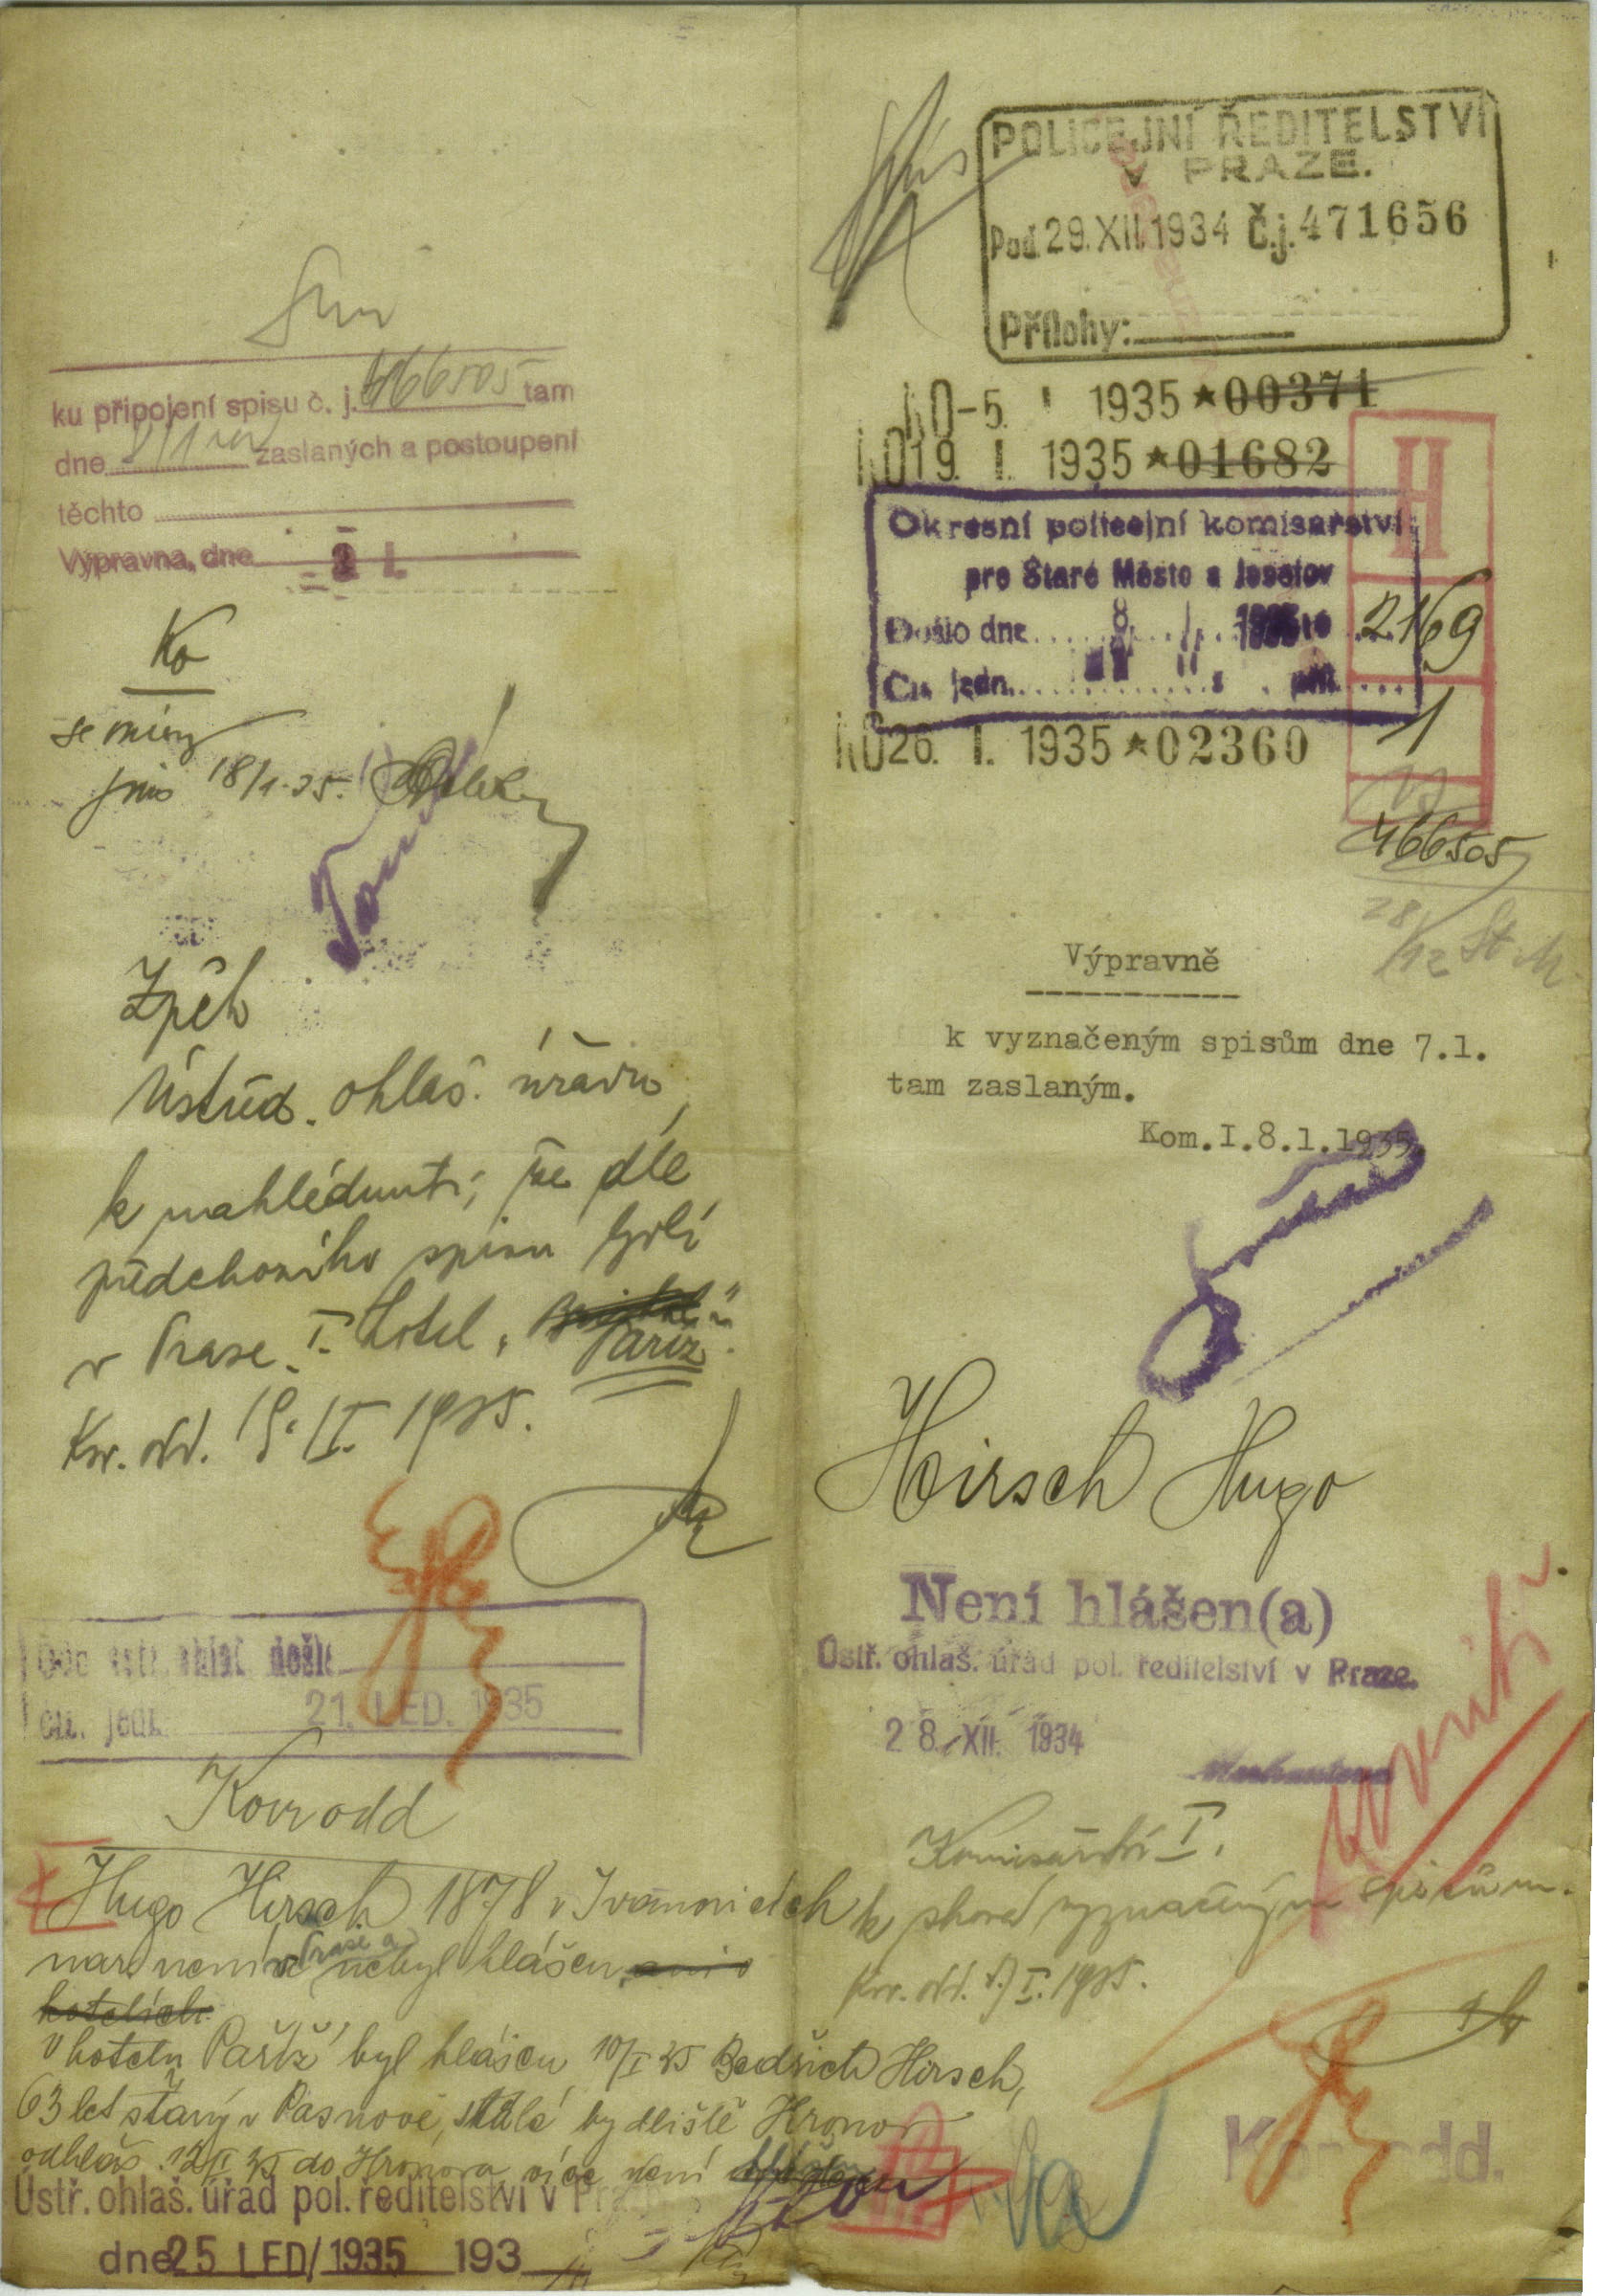 ku připojení spisu č. j. 466505 tam
dne zaslaných a postoupení
těchto
Výpravna, dne
Ko
18/1.35.
Zpět
Ústřed. ohlaš. úřadu
k nahlédnutí, že dle
předchozího spisu bydlí
v Praze I. hotel „
Paříž".
Kr. odd. 19. I. 1935.
došlo
čís. jedn.
21. LED. 1935
Kovr odd
Hugo Hirsch 1878 v Ivanovicích
nar. není v Praze a nebyl hlášen, ani v
hotelích.
V hotelu Paříž byl hlášen 10/I 35 Bedřich Hirsch,
63 let starý v Pasnově, stálé bydliště Hronov
odhláš. 12/I 35 do Hronova více není
Ústř. ohlaš. úřad pol. ředitelství v Pra
dne 25 LED 1935 193
POLICEJNÍ ŘEDITELSTVÍ
V PRAZE.
Pod. 29. XII. 1934 Č.j. 471656
Přílohy:
-5. I 1935 ★00371
19. I. 1935 ★01682
H
Okresní policejní komisařství
pro Staré Město a Josefov
Došlo dne 8. I. 1935
2169
Čís. jedn.
1
26. I. 1935 ★02360
466505
28/12 St. M.
Výpravně
k vyznačeným spisům dne 7.1.
tam zaslaným.
Kom.I.8.1.1935.
Hirsch Hugo
Není hlášen(a)
Ústř. ohlaš. úřad pol. ředitelství v Praze.
28. XII. 1934
Komisařství I.
k shora vyznačeným spisům.
Kr. odd. I. 1935.